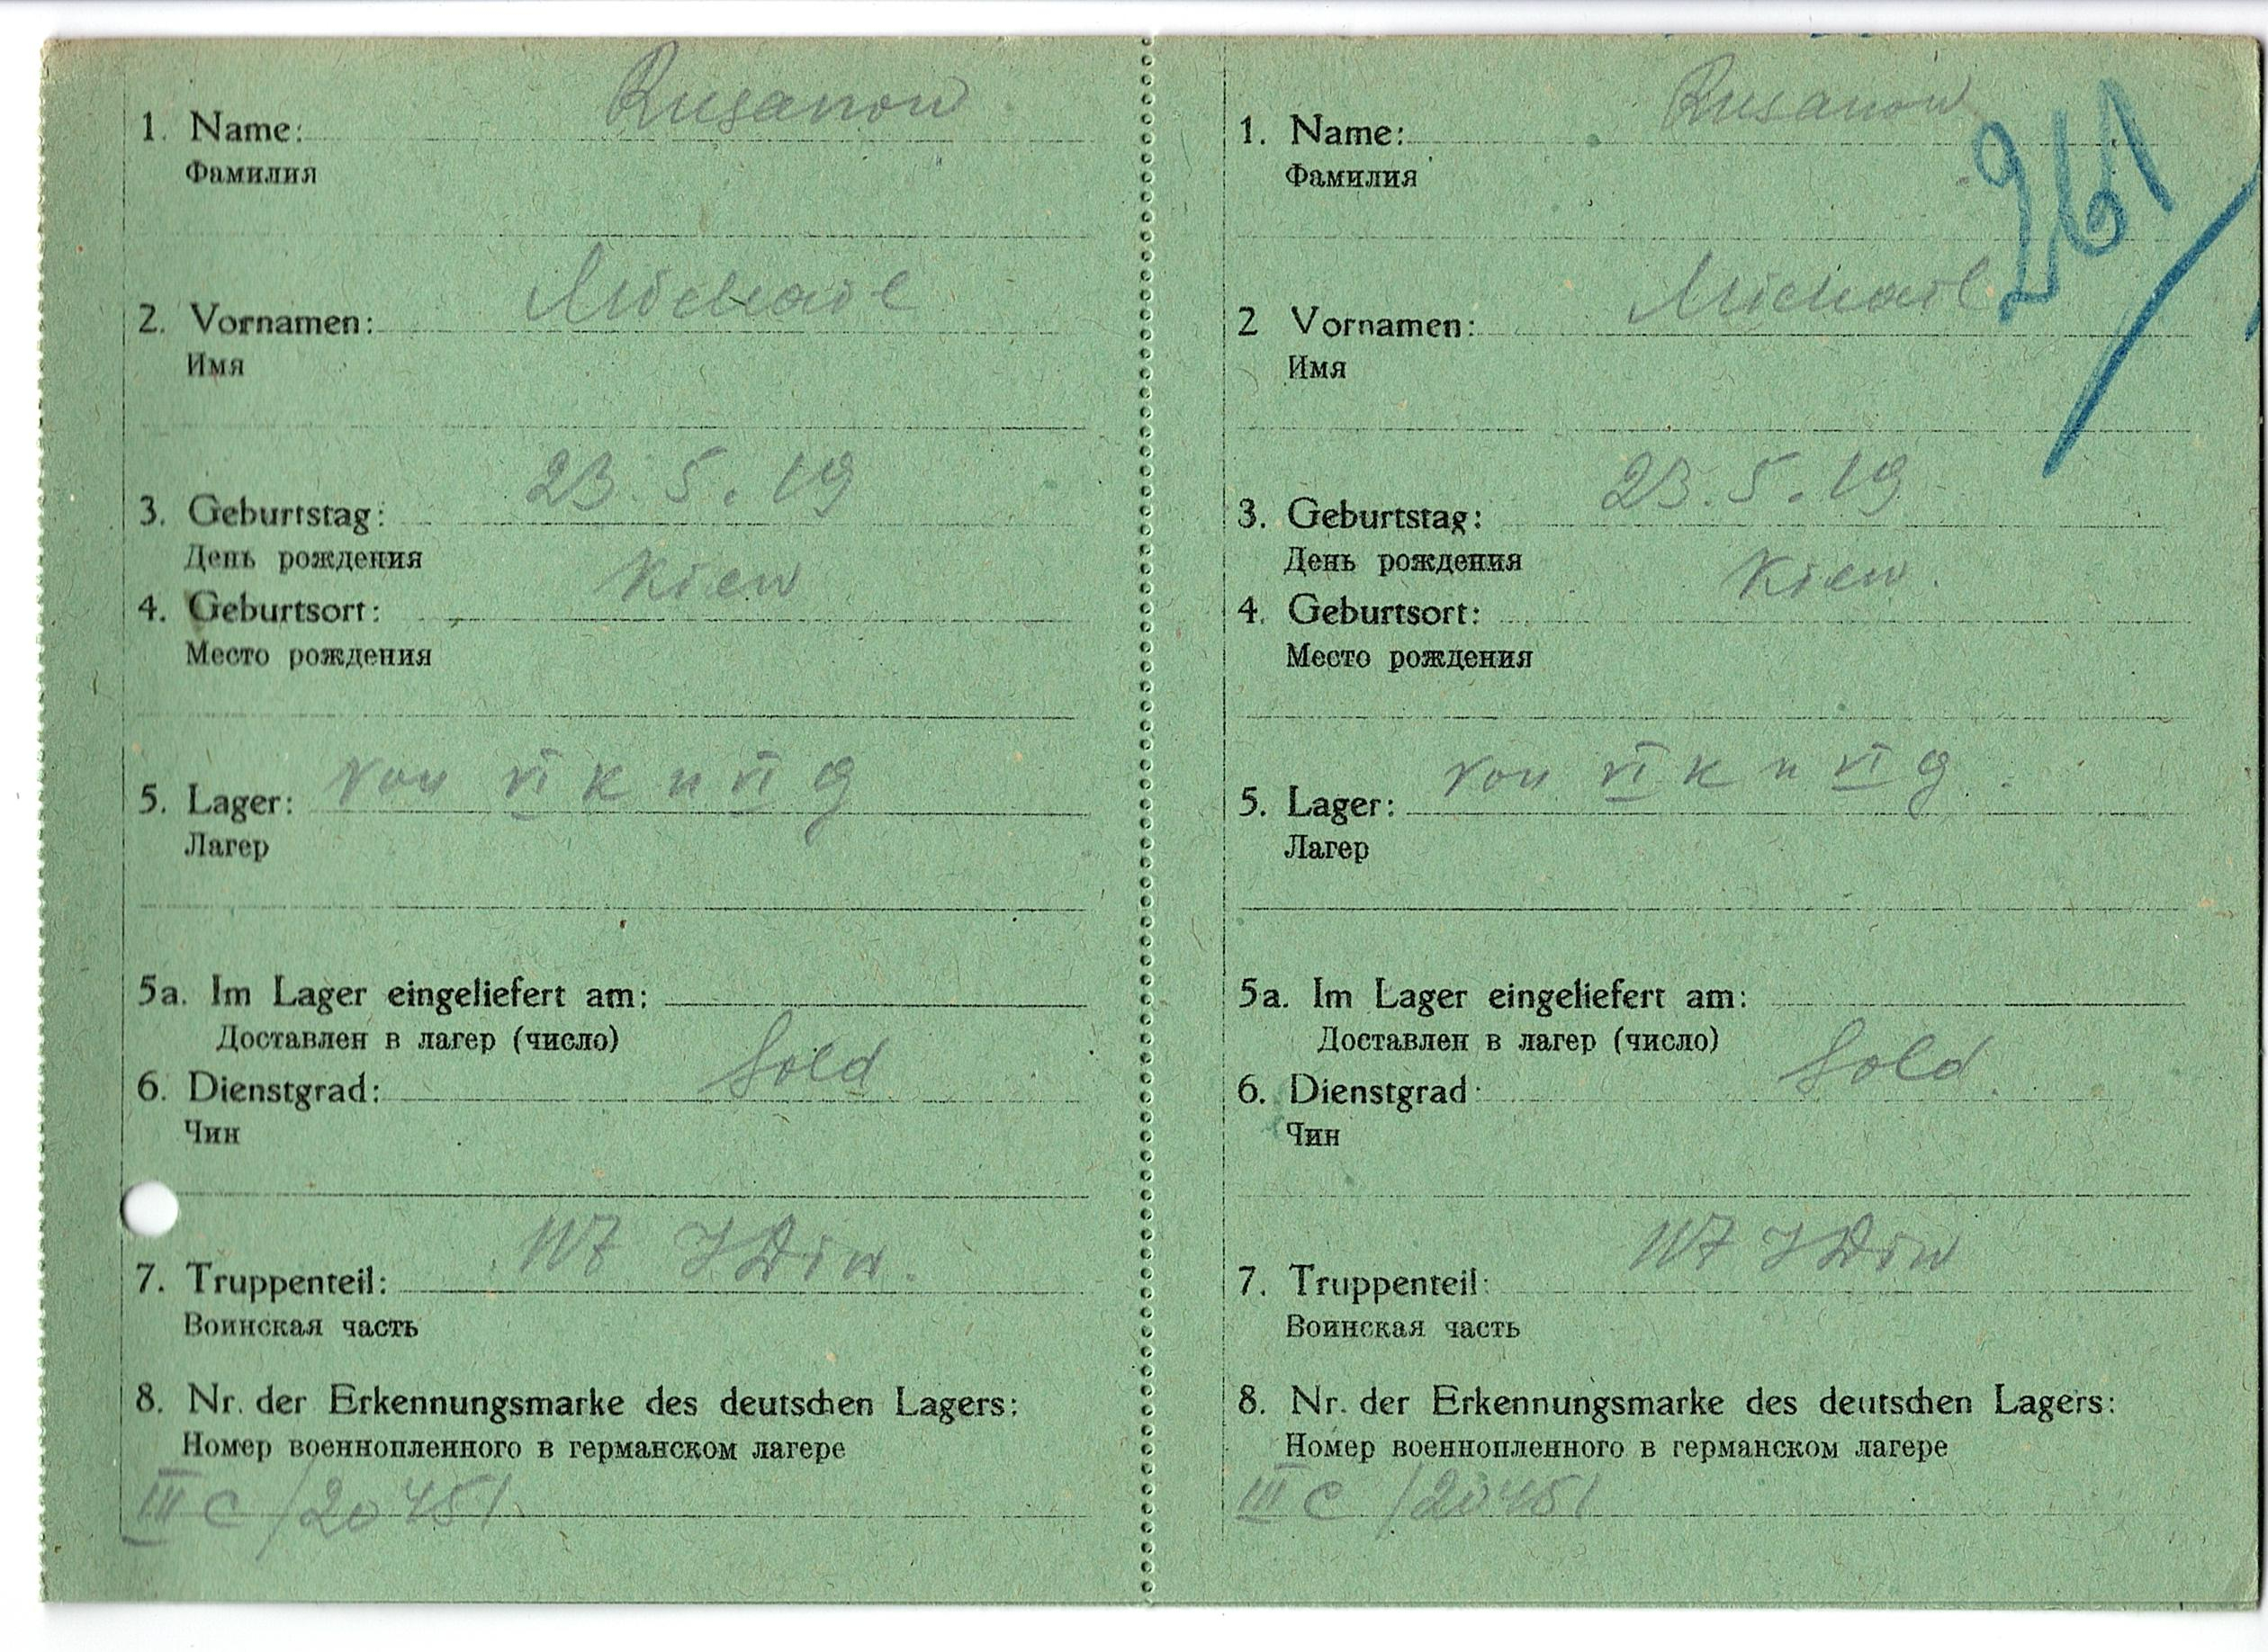 1. Name: Rusanow
Фамилия
2. Vornamen: Michail
Имя
3. Geburtstag: 23.5.19
День рождения
4. Geburtsort: Kiew
Место рождения
5. Lager: von VI K u VI G
Лагер
5a. Im Lager eingeliefert am:
Доставлен в лагер (число)
6. Dienstgrad: Sold
Чин
7. Truppenteil: 117 IDiv.
Воинская часть
8. Nr. der Erkennungsmarke des deutschen Lagers:
Номер военнопленного в германском лагере
III C / 20451
1. Name: Rusanow
Фамилия
261
2 Vornamen: Michail
Имя
3. Geburtstag: 23.5.19
День рождения
4. Geburtsort: Kiew.
Место рождения
5. Lager: von VI K u VI G.
Лагер
5a. Im Lager eingeliefert am:
Доставлен в лагер (число)
6. Dienstgrad: Sold.
Чин
7. Truppenteil: 117 IDiv
Воинская часть
8. Nr. der Erkennungsmarke des deutschen Lagers:
Номер военнопленного в германском лагере
III C / 20451